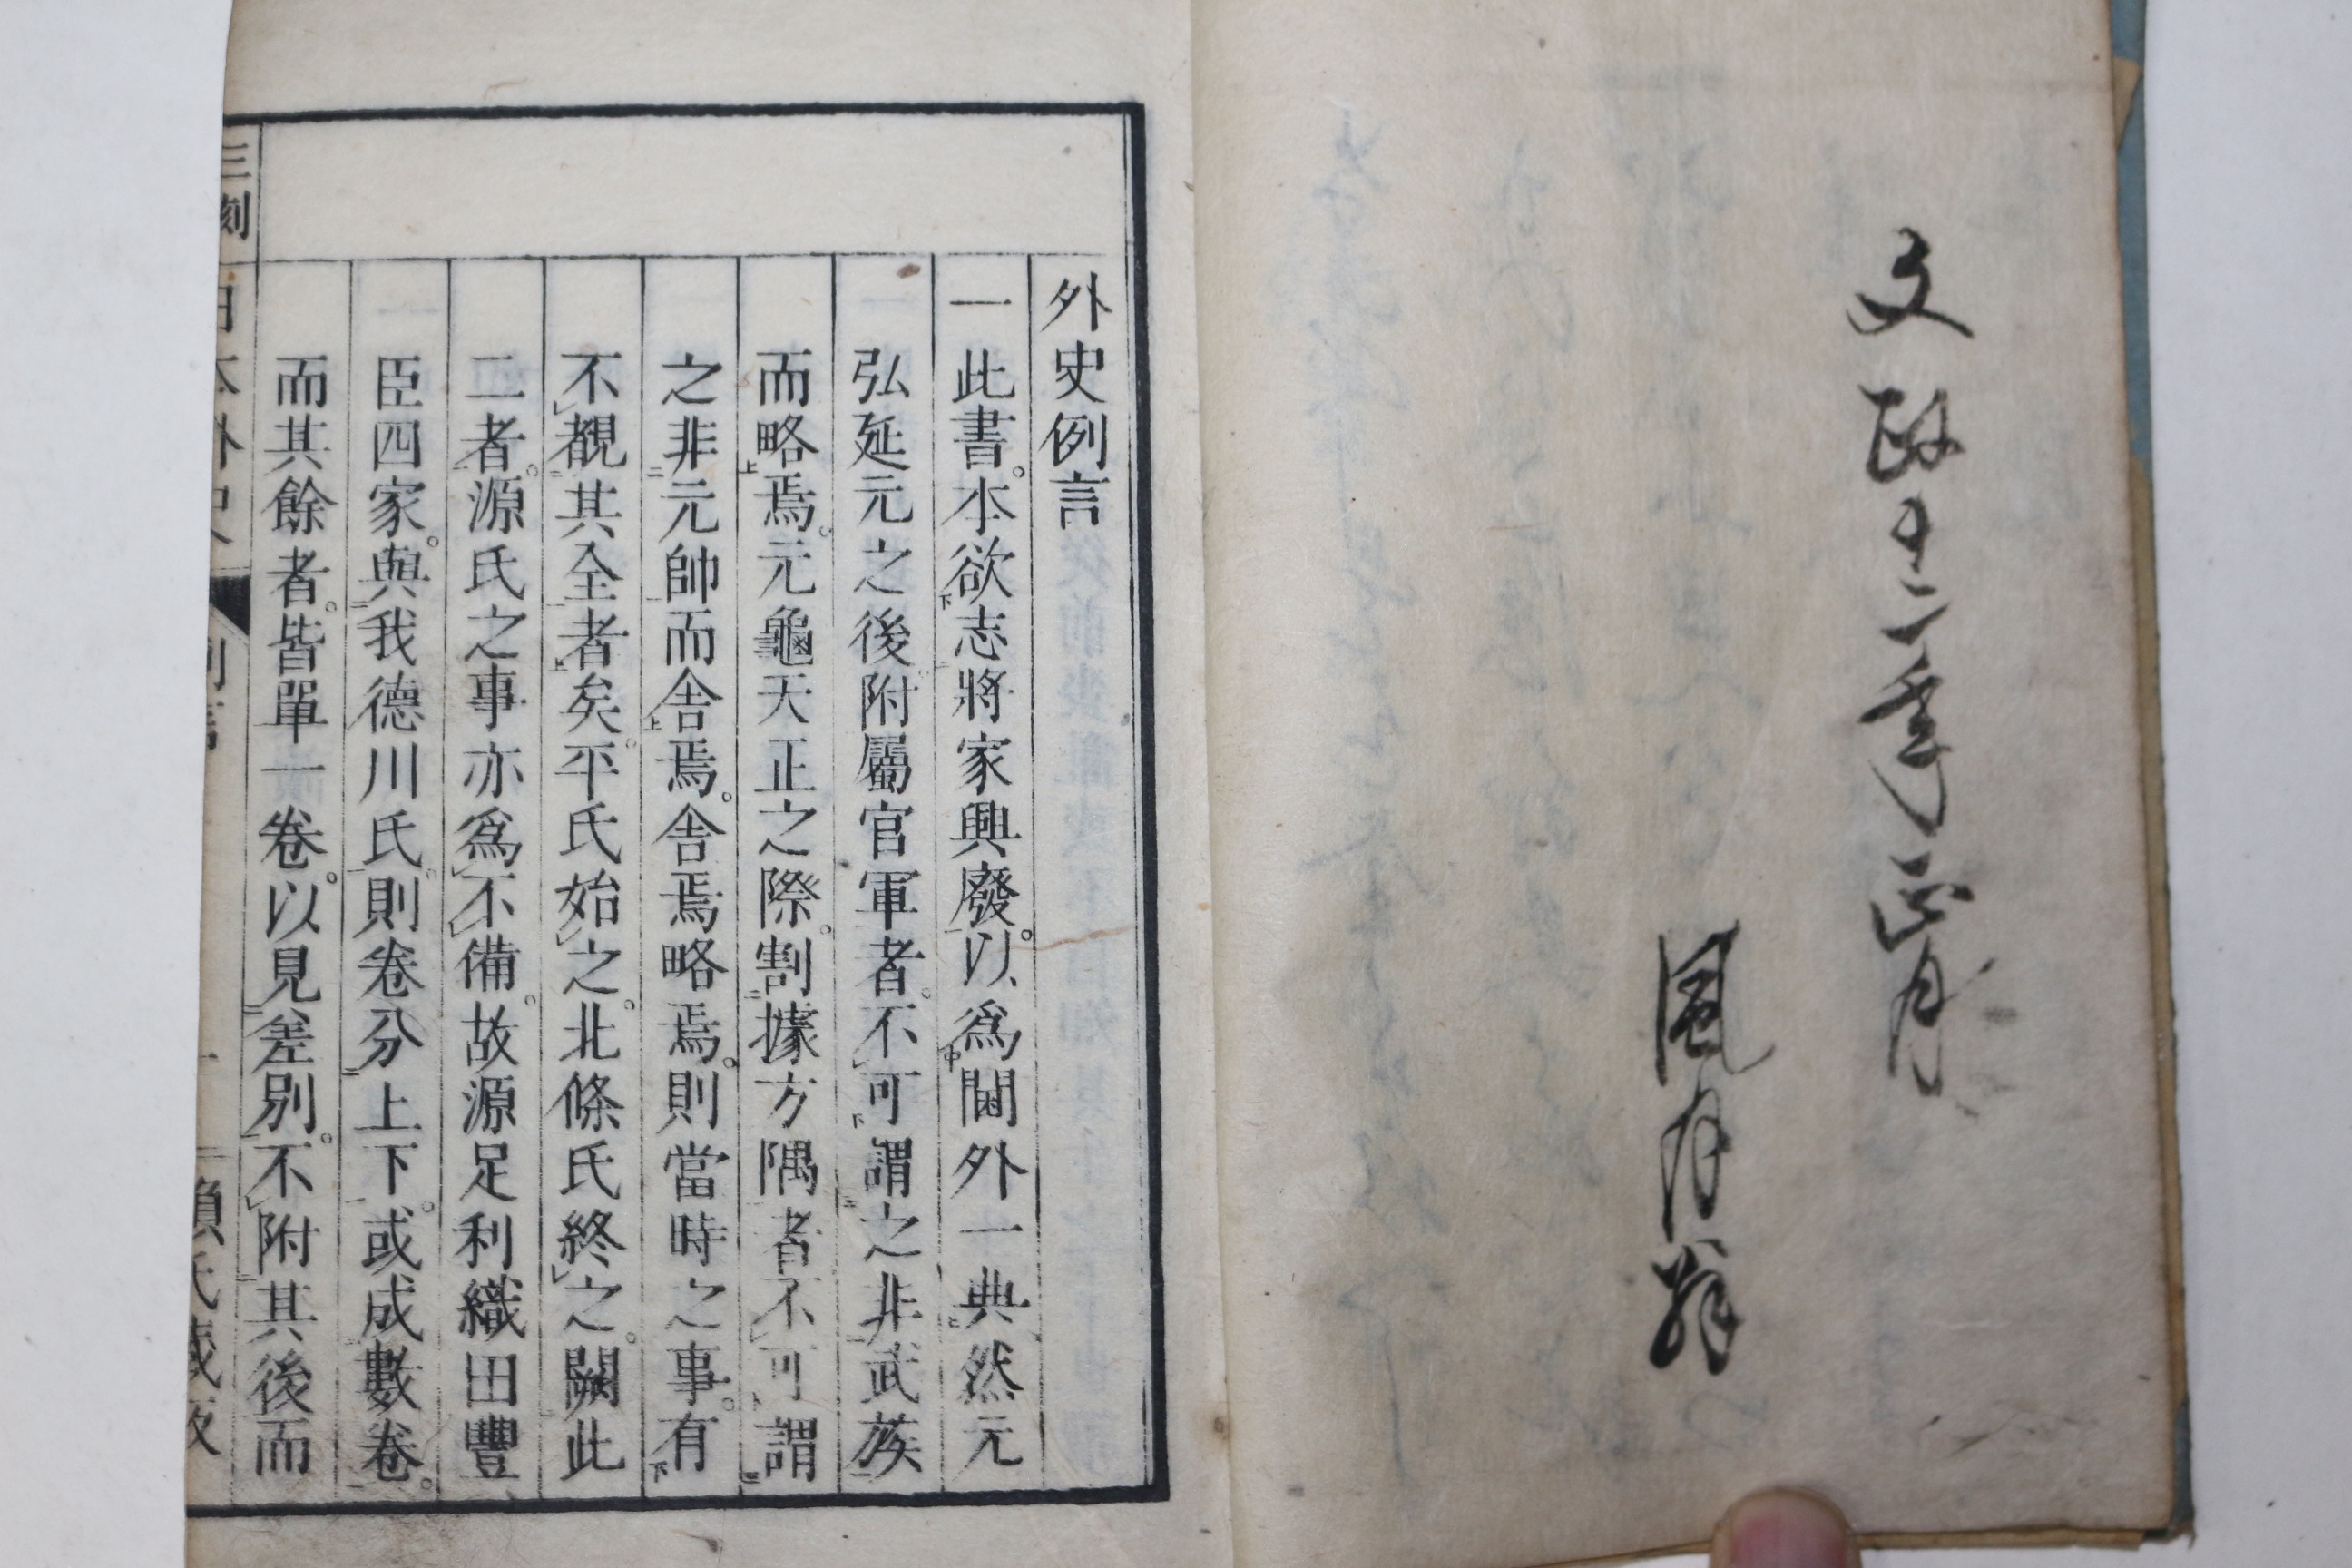 文政十二年正月
風月翁
外史例言
一此書。本欲志將家興廢。以爲閫外一典。然元
弘延元之後。附屬官軍者。不可謂之非武族
而略焉。元龜天正之際。割據方隅者不可謂
之非元帥而舎焉。舎焉略焉。則當時之事。有
不覩其全者矣。平氏始之。北條氏終之。闕此
二者。源氏之事亦爲不備。故源足利織田豐
臣四家。與我德川氏。則卷分上下。或成數卷。
而其餘者。皆單一卷。以見差別。不附其後而
三刻 日本外史 例言 一 賴氏藏板